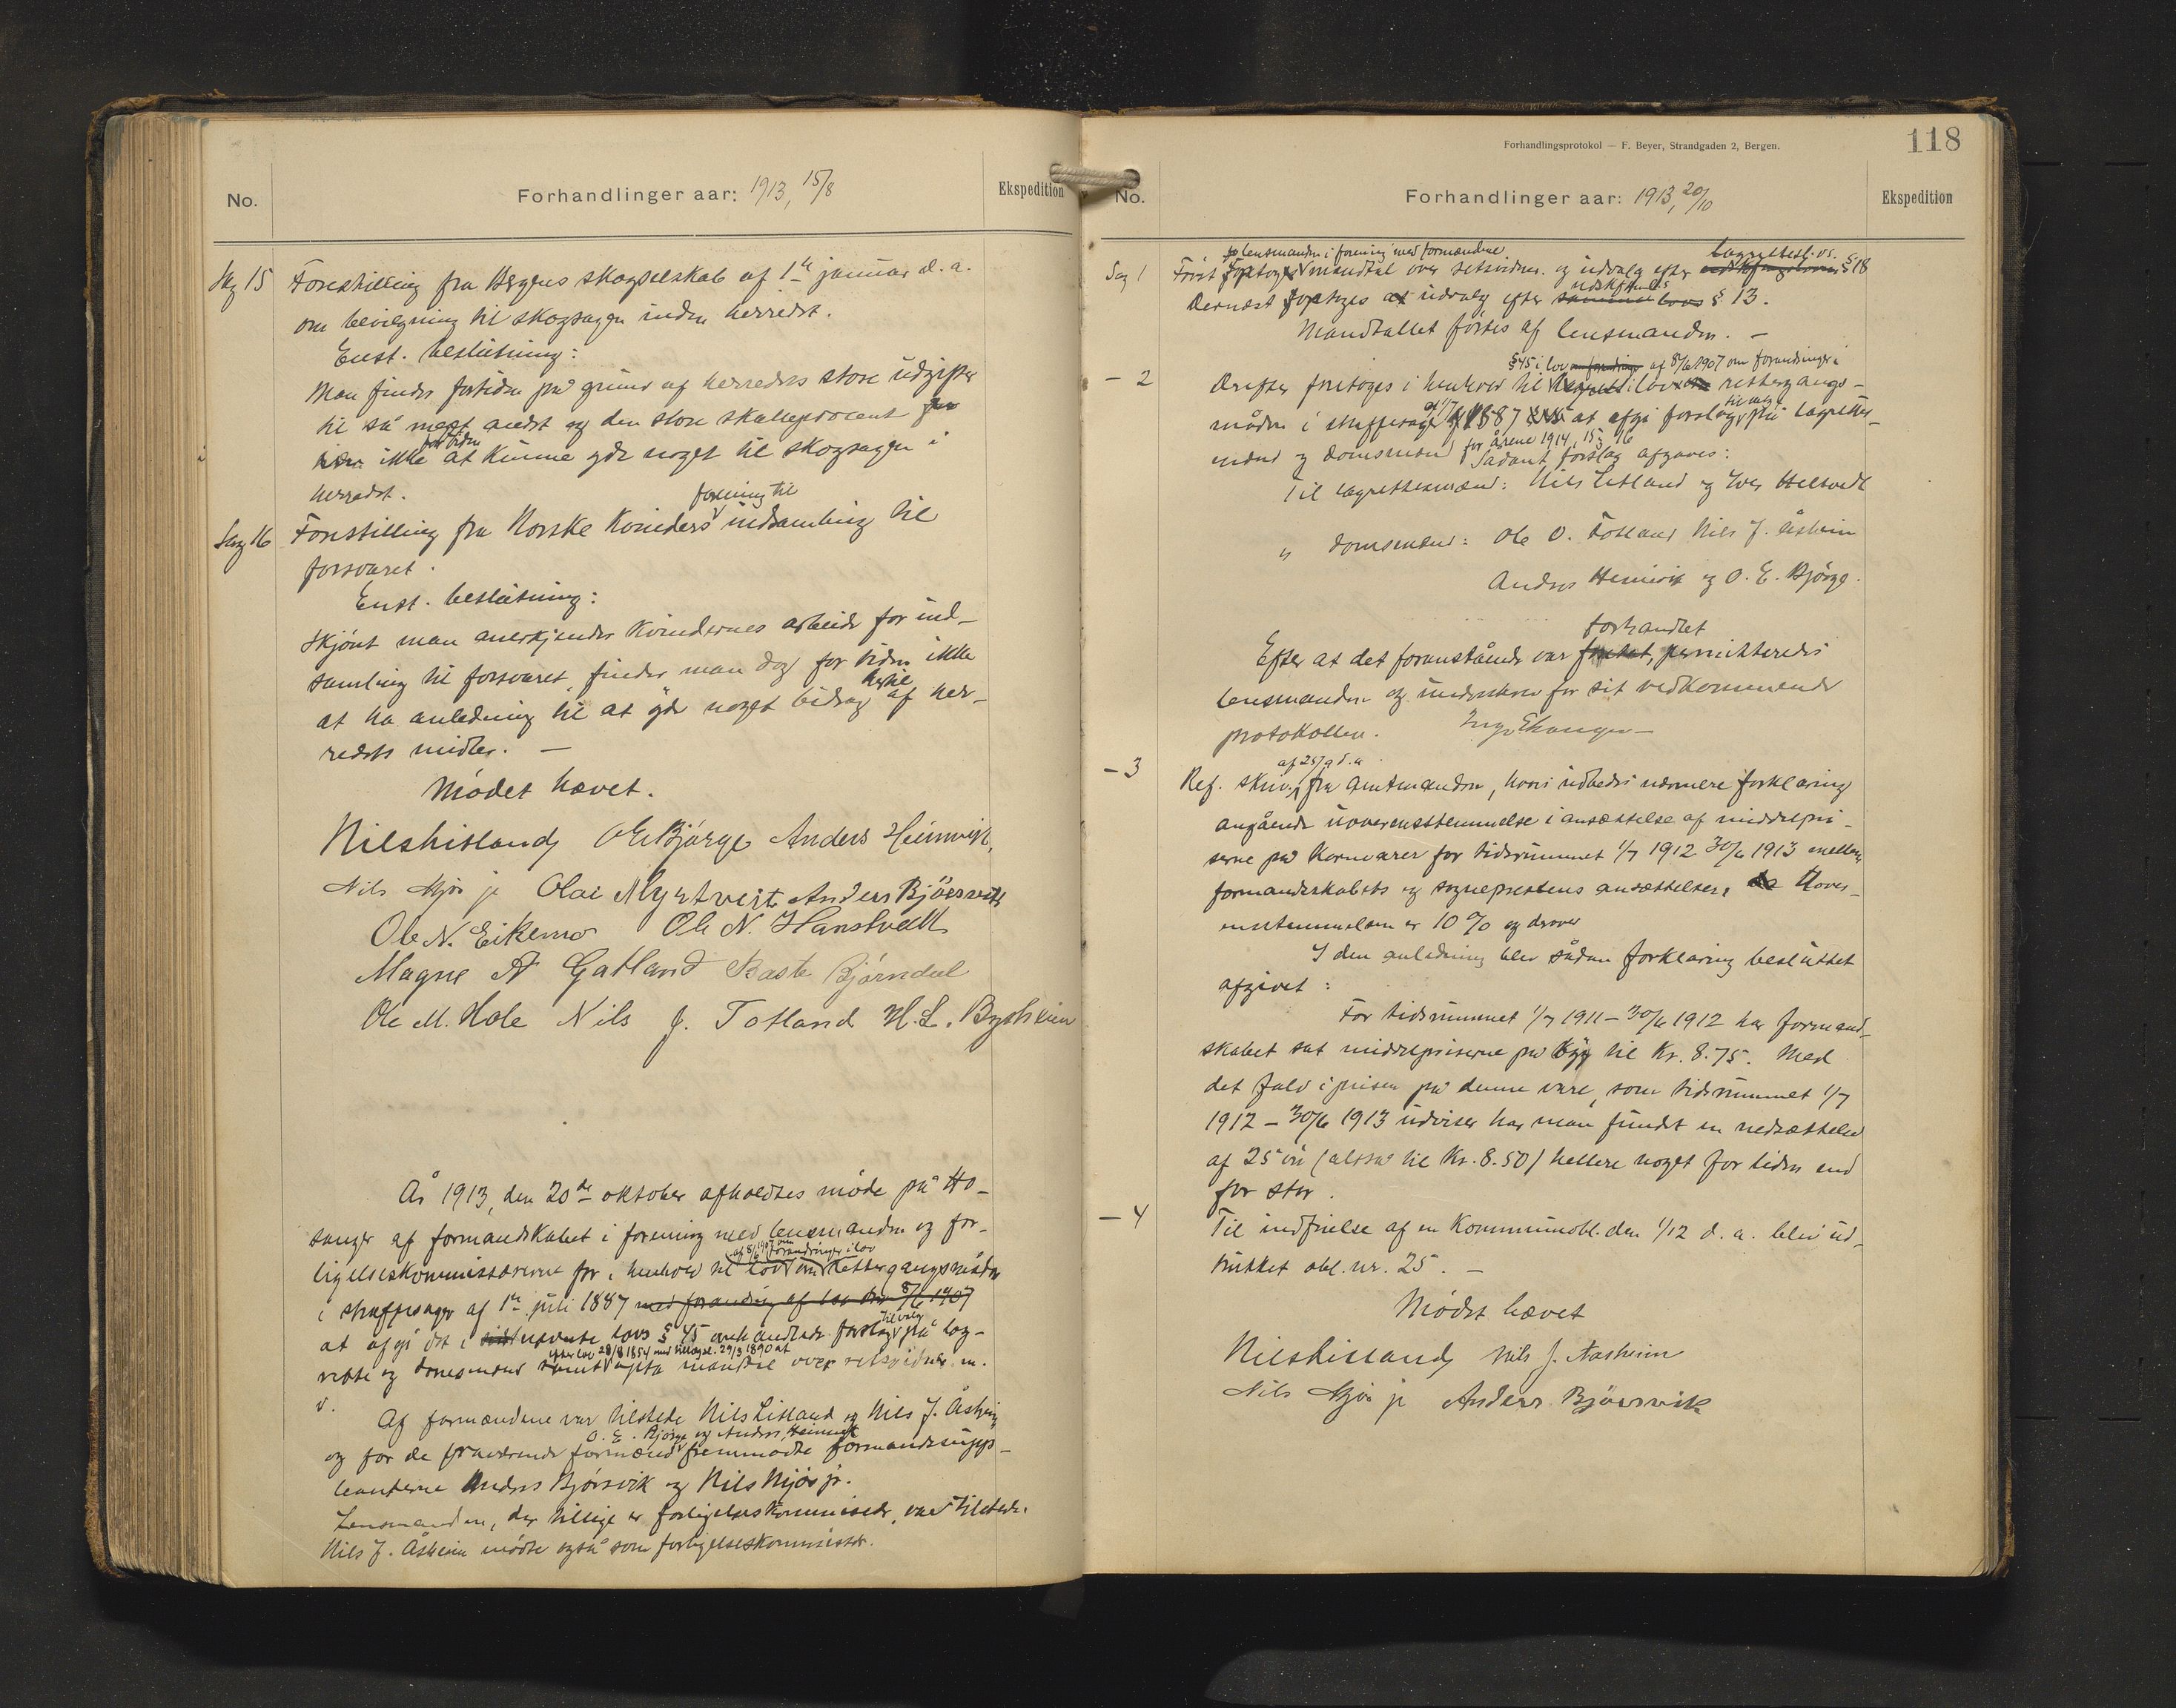 No.
Forhandlinger aar: 1913, 15/8
Ekspedition
Sag 15 Forestilling fra Bergens skogselskab af 1ste januar d. a.
om bevilgning til skogsagen inden herredet.
Enst. beslutning:
Man finder fortiden på grund af herredets store udgifter
til så meget andet og den store skatteprocent
ikke for tiden at kunne yde noget til skogsagen i
herredet.
Sag 16 Forestilling fra Norske Kvinders forening til indsamling til
forsvaret.
Enst. beslutning:
Skjönt man anerkjender Kvindernes arbeide for ind-
samling til forsvaret, finder man dog for tiden ikke
at ha anledning til at yde noget bidrag hertil af her-
redets midler. —
Mödet hævet.
Nils Lisland O E Bjørge Anders Heimvik
Nils Mjös jr Olai Myrtveit Anders Bjørsvik
Ole N. Eikemo Ole N. Hanstvedt
Magne A Gatland Baste Bjørndal
Ole M. Hole Nils J. Totland H. L. Bysheim
År 1913, den 20de oktober afholdtes möde på Ho-
sanger af formandskabet i forening med lensmanden og for-
ligelseskommissærerne for i henhold til lov af 8/6 1907 om forandringer i lov om rettergangsmåden
i straffesager af 1ste juli 1887 med forandring af lov den 8/6 1907
at afgi det i nævnte lovs § 45 omhandlede forslag til valg på lag-
rette og domsmænd samt efter lov 28/8 1854 med tillægsl. 29/3 1890 at opta mandtal over retsvidner m.
v.
Af formændene var tilstede Nils Lisland og Nils J. Åsheim
og for de fraværende formænd O. E. Bjørge og Anders Heimvik fremmödte formandssupp-
leanterne Anders Bjørsvik og Nils Mjös jr.
Lensmanden, der tillige er forligelseskommissær, var tilstede.
Nils J. Åsheim mödte også som forligelseskommissær.
Forhandlingsprotokol — F. Beyer, Strandgaden 2, Bergen.
118
No.
Forhandlinger aar: 1913, 20/10
Ekspedition
Sag 1 Først foretoges lensmanden i forening med formændene mandtal over retsvidner og udvalg efter lagrettesl. os. § 18
Dernæst foretoges udvalg efter § 13.
Mandtallet förtes af lensmanden. —
— 2 Derefter foretoges i henhold til § 45 i lov af 8/6 1907 om forandringer i lov om rettergangs-
måden i straffesager af 1/7 1887 at afgi forslag til valg på lagrettes-
mænd og domsmænd for årene 1914, 15 og 16
Sådant forslag afgaves:
Til lagrettesmænd: Nils Lisland og Iver Helltvedt
" domsmænd: Ole O. Totland Nils J. Åsheim
Anders Heimvik og O. E. Bjørge.
Efter at det foranstående var forhandlet, permitteredes
lensmanden og underskrev for sit vedkommende
protokollen. Inge Ekanger —
— 3 Ref. skriv. af 25/9 d. a. fra Amtmanden, hvori udbedes nærmere forklaring
angående uoverensstemmelse i ansættelse af middelpri-
serne på kornvarer for tidsrummet 1/7 1912 30/6 1913 mellem
formandskabets og sogneprestens ansættelser. Uover-
ensstemmelsen er 10 % og derover
I den anledning blev sådan forklaring besluttet
afgivet:
For tidsrummet 1/7 1911 — 30/6 1912 har formand-
skabet sat middelpriserne på byg til Kr. 8.75. Med
det fald i prisen på denne vare, som tidsrummet 1/7
1912 — 30/6 1913 udviser har man fundet en nedsættelse
af 25 öre (altså til Kr. 8.50) hellere noget for liden end
for stor.
— 4 Til indfrielse af en Kommuneobl. den 1/12 d. a. blev ud-
trukket obl. nr. 25. —
Mödet hævet
Nils Lisland Nils J. Aasheim
Nils Mjös jr Anders Bjørsvik